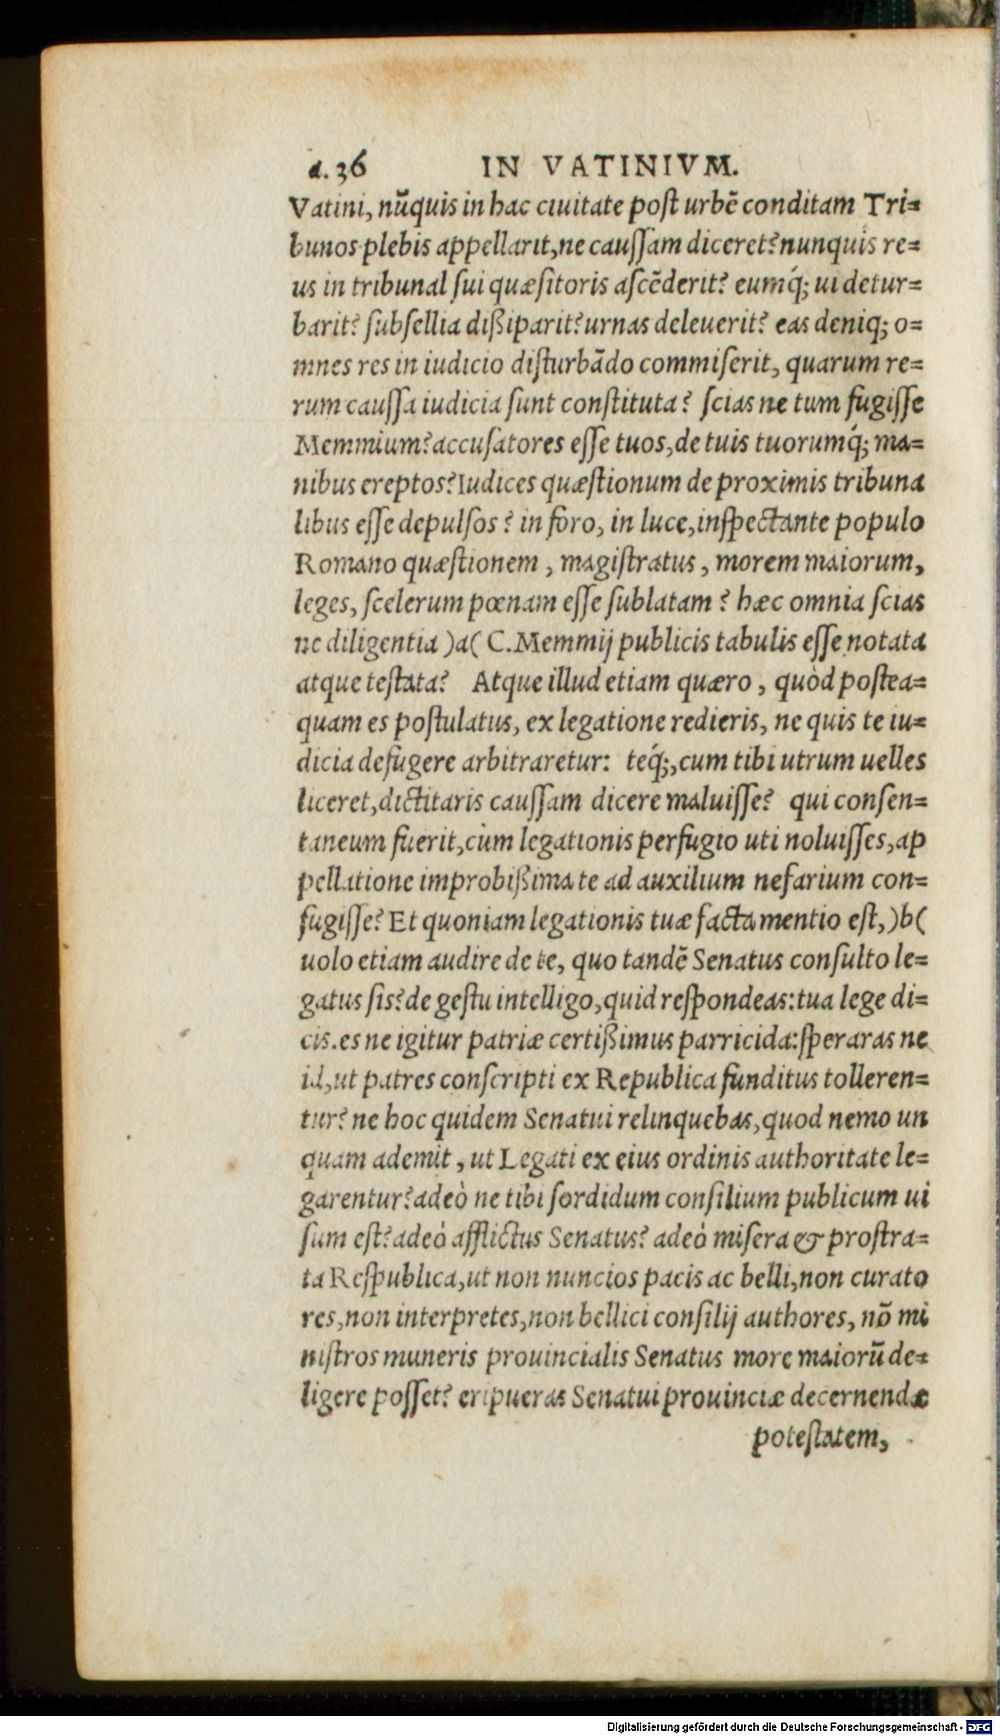 a. 36 IN VATINIVM.
Vatini, nūquis in hac ciuitate poſt urbē conditam Tri=
bunos plebis appellarit, ne cauſſam diceret? nunquis re=
us in tribunal ſui quæſitoris aſcēderit? eumq́; ui detur=
barit? ſubſellia dißiparit? urnas deleuerit? eas deniq; o=
mnes res in iudicio diſturbādo commiſerit, quarum re=
rum cauſſa iudicia ſunt conſtituta? ſcias ne tum fugiſſe
Memmium? accuſatores eſſe tuos, de tuis tuorumq́; ma=
nibus ereptos? Iudices quæſtionum de proximis tribuna
libus eſſe depulſos? in foro, in luce, inſpectante populo
Romano quæſtionem, magiſtratus, morem maiorum,
leges, ſcelerum pœnam eſſe ſublatam? hæc omnia ſcias
ne diligentia )a( C. Memmij publicis tabulis eſſe notata
atque teſtata? Atque illud etiam quæro, quòd poſtea=
quam es poſtulatus, ex legatione redieris, ne quis te iu=
dicia defugere arbitraretur: teq́;, cum tibi utrum uelles
liceret, dictitaris cauſſam dicere maluiſſe? qui conſen=
taneum fuerit, cùm legationis perfugio uti noluiſſes, ap
pellatione improbißima te ad auxilium nefarium con=
fugiſſe? Et quoniam legationis tuæ facta mentio eſt, )b(
uolo etiam audire de te, quo tandē Senatus conſulto le=
gatus ſis? de geſtu intelligo, quid reſpondeas: tua lege di=
cis. es ne igitur patriæ certißimus parricida: ſperaras ne
id, ut patres conſcripti ex Republica funditus tolleren=
tur? ne hoc quidem Senatui relinquebas, quod nemo un
quam ademit, ut Legati ex eius ordinis authoritate le=
garentur? adeò ne tibi ſordidum conſilium publicum ui
ſum eſt? adeò afflictus Senatus? adeò miſera & proſtra=
ta Reſpublica, ut non nuncios pacis ac belli, non curato
res, non interpretes, non bellici conſilij authores, nō mi
niſtros muneris prouincialis Senatus more maiorū de=
ligere poſſet? eripueras Senatui prouinciæ decernendæ
poteſtatem,
Digitalisierung gefördert durch die Deutsche Forschungsgemeinschaft - DFG